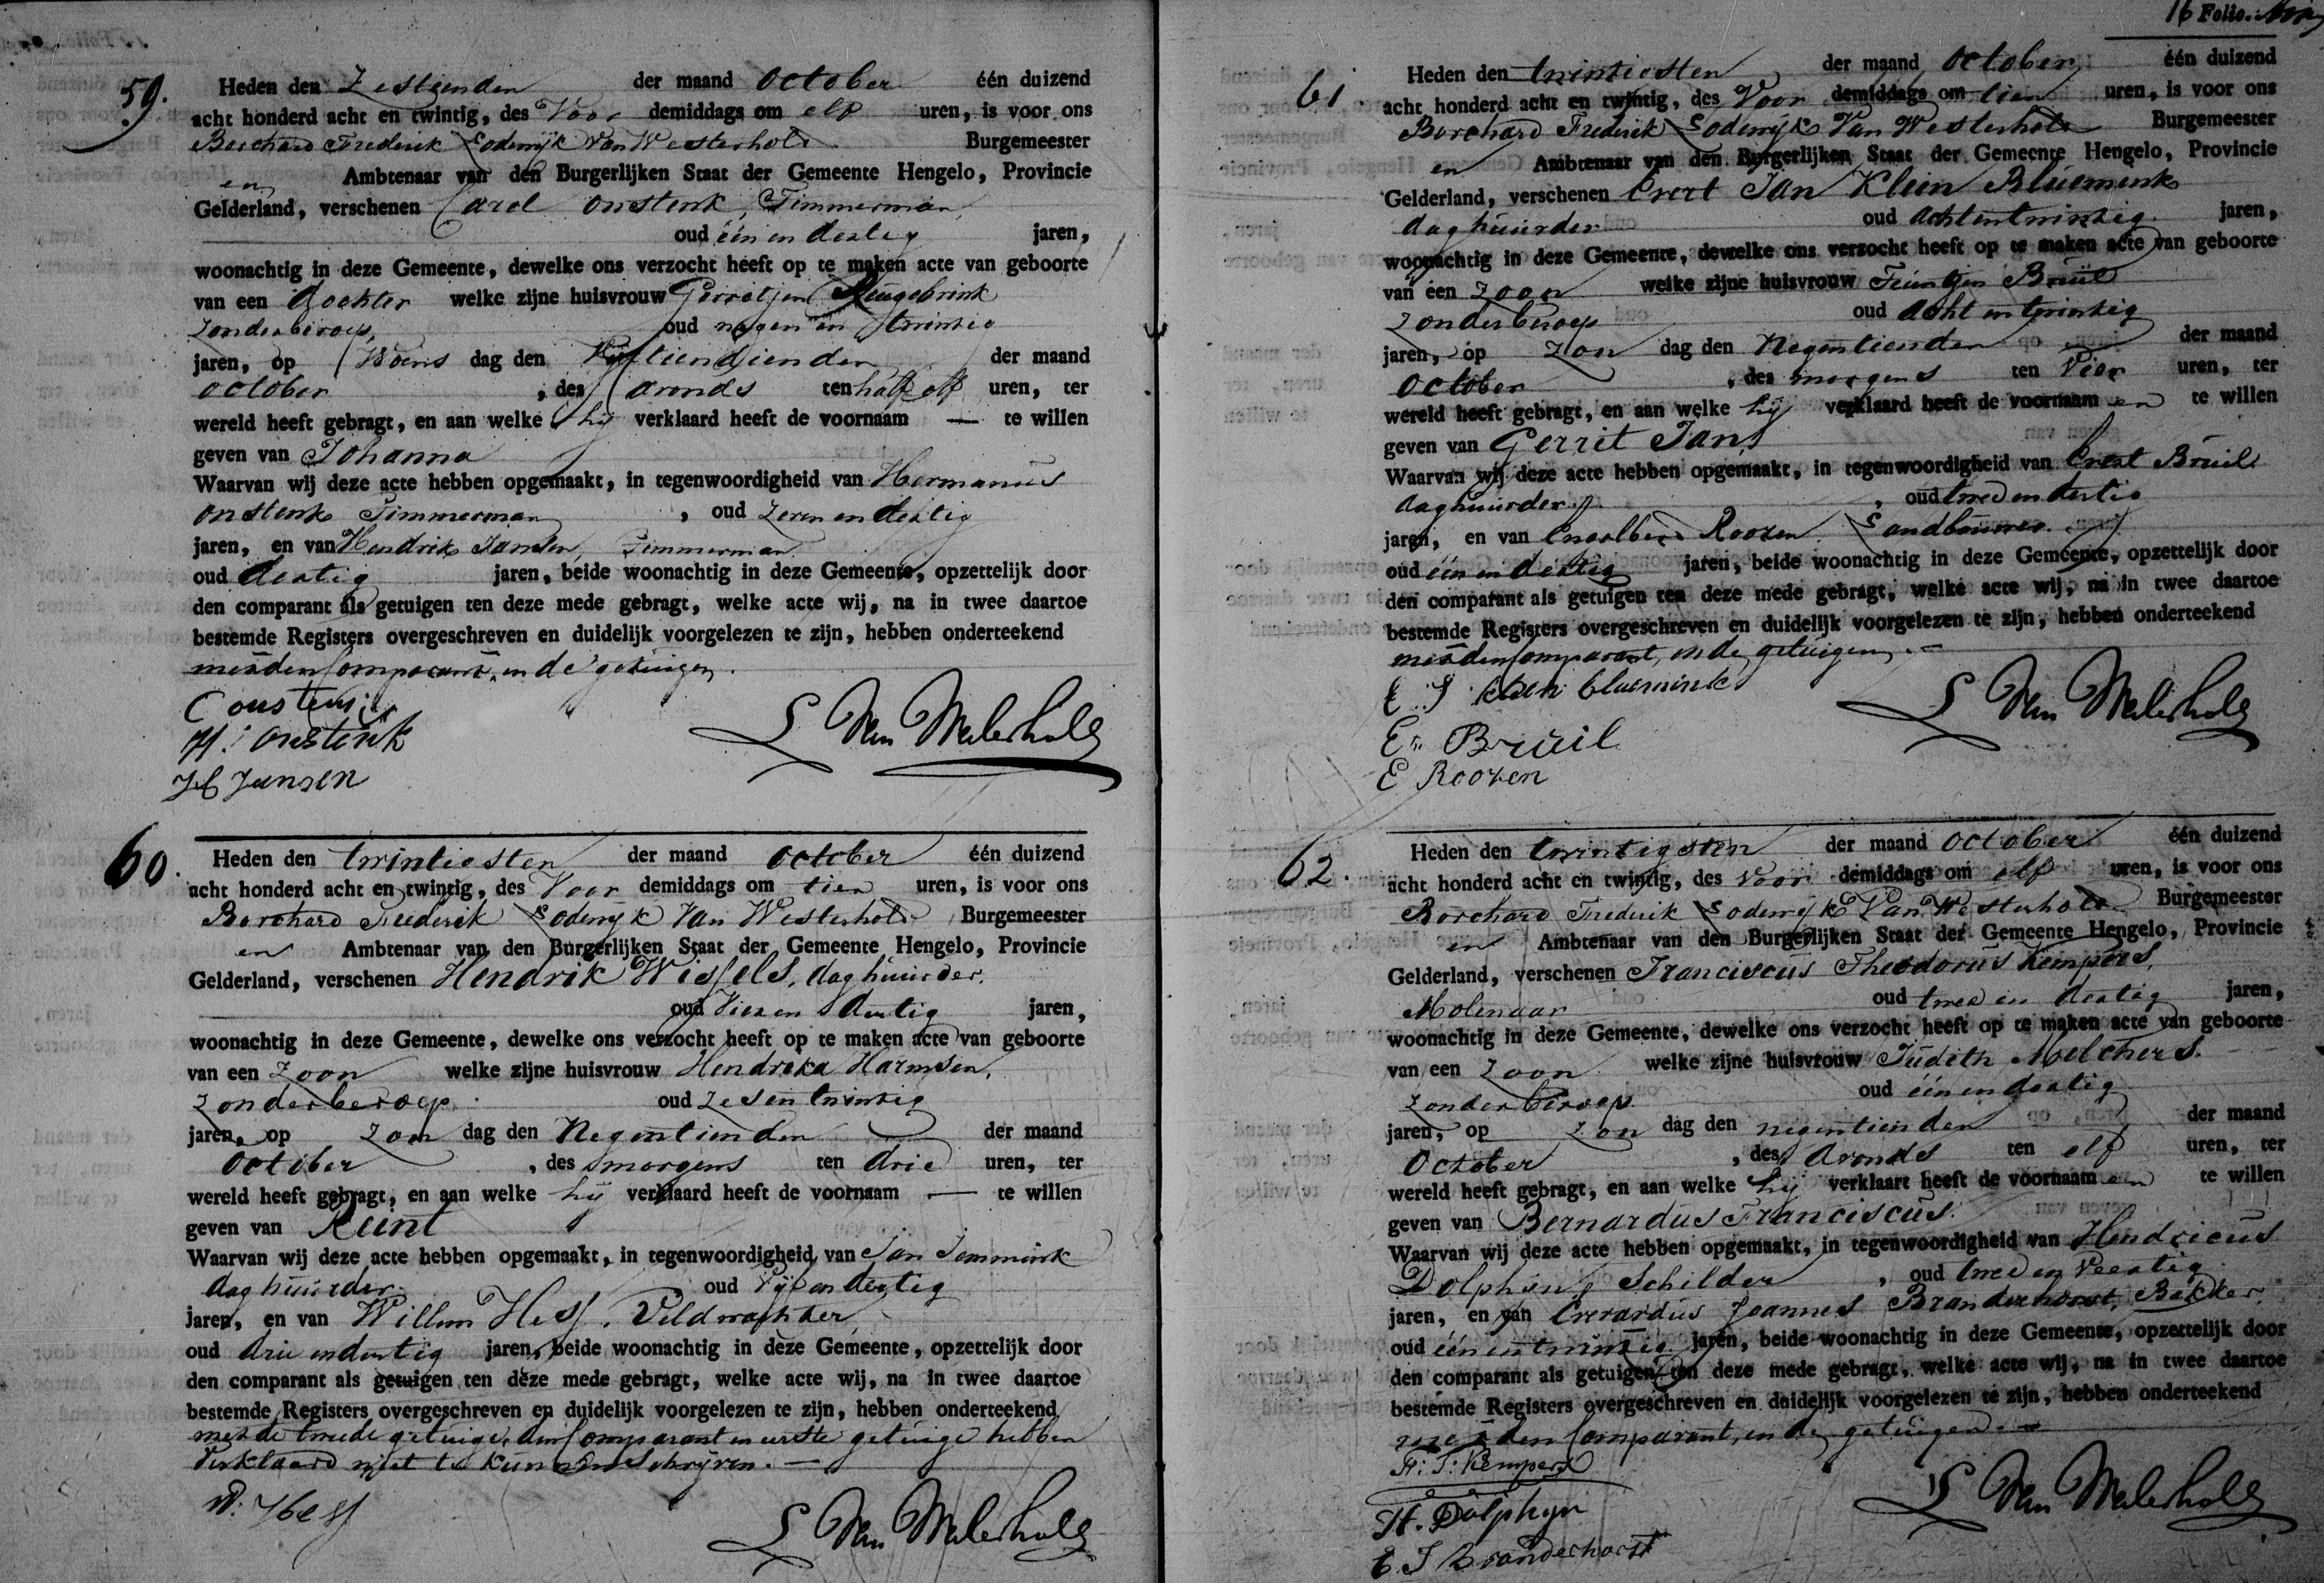 59.
Heden den Zestienden der maand October één duizend
acht honderd acht en twintig, des Voor demiddags om elf uren, is voor ons
Borchard Frederik Lodewijk Van Westerholt Burgemeester
en Ambtenaar van den Burgerlijken Staat der Gemeente Hengelo, Provincie
Gelderland, verschenen Carel Onstenk, Timmerman,
oud één en dertig jaren,
woonachtig in deze Gemeente, dewelke ons verzocht heeft op te maken acte van geboorte
van een dochter welke zijne huisvrouw Gerritjen
zonder beroep, oud negen en twintig
jaren, op Woens dag den der maand
October , des avonds ten half elf uren, ter
wereld heeft gebragt, en aan welke hij verklaard heeft de voornaam — te willen
geven van Johanna
Waarvan wij deze acte hebben opgemaakt, in tegenwoordigheid van Hermanus
Onstenk Timmerman , oud zeven en dertig
jaren, en van Hendrik Jansen, Timmerman
oud dertig jaren, beide woonachtig in deze Gemeente, opzettelijk door
den comparant als getuigen ten deze mede gebragt, welke acte wij, na in twee daartoe
bestemde Registers overgeschreven en duidelijk voorgelezen te zijn, hebben onderteekend
met den Comparant, en de getuigen.
C onstenk
H: onstenk
H Jansen
L Van Westerholt
60.
Heden den twintigsten der maand October één duizend
acht honderd acht en twintig, des Voor demiddags om tien uren, is voor ons
Borchard Frederik Lodewijk Van Westerholt Burgemeester
en Ambtenaar van den Burgerlijken Staat der Gemeente Hengelo, Provincie
Gelderland, verschenen Hendrik Wissels, daghuurder,
oud Vier en dertig jaren,
woonachtig in deze Gemeente, dewelke ons verzocht heeft op te maken acte van geboorte
van een Zoon welke zijne huisvrouw Hendrika Harmsen,
Zonder beroep. oud Zes en twintig
jaren, op Zon dag den Negentienden der maand
October , des morgens ten drie uren, ter
wereld heeft gebragt, en aan welke hij verklaard heeft de voornaam — te willen
geven van
Waarvan wij deze acte hebben opgemaakt, in tegenwoordigheid van Jan
daghuurder oud Vijf en dertig
jaren, en van Willem Hess, Veldwachter
oud drie en dertig jaren, beide woonachtig in deze Gemeente, opzettelijk door
den comparant als getuigen ten deze mede gebragt, welke acte wij, na in twee daartoe
bestemde Registers overgeschreven en duidelijk voorgelezen te zijn, hebben onderteekend
met de tweede getuige, den Comparant en eerste getuige hebben
verklaard niet te kunnen Schrijven. —
W: Hess
L Van Westerholt
16 Folio.
61.
Heden den twintigsten der maand October één duizend
acht honderd acht en twintig, des Voor demiddags om tien uren, is voor ons
Borchard Frederik Lodewijk Van Westerholt Burgemeester
en Ambtenaar van den Burgerlijken Staat der Gemeente Hengelo, Provincie
Gelderland, verschenen Evert Jan Klein Bluemink
daghuurder oud Acht en twintig jaren,
woonachtig in deze Gemeente, dewelke ons verzocht heeft op te maken acte van geboorte
van een Zoon welke zijne huisvrouw Teuntjen Bruil
Zonder beroep oud Acht en twintig
jaren, op Zon dag den Negentienden der maand
October , des morgens ten Vier uren, ter
wereld heeft gebragt, en aan welke hij verklaard heeft de voornaam en te willen
geven van Gerrit Jan,
Waarvan wij deze acte hebben opgemaakt, in tegenwoordigheid van Evert Bruil
daghuurder , oud twee en dertig
jaren, en van Engelbert Roozen Landbouwer
oud één en dertig jaren, beide woonachtig in deze Gemeente, opzettelijk door
den comparant als getuigen ten deze mede gebragt, welke acte wij, na in twee daartoe
bestemde Registers overgeschreven en duidelijk voorgelezen te zijn, hebben onderteekend
met den Comparant, en de getuigen. —
E J klein bluemink
Et Bruil
E Roozen
L Van Westerholt
62.
Heden den twintigsten der maand October één duizend
acht honderd acht en twintig, des voor demiddags om elf uren, is voor ons
Borchard Frederik Lodewijk Van Westerholt Burgemeester
en Ambtenaar van den Burgerlijken Staat der Gemeente Hengelo, Provincie
Gelderland, verschenen Franciscus Theodorus Kempers,
Molenaar oud twee en dertig jaren,
woonachtig in deze Gemeente, dewelke ons verzocht heeft op te maken acte van geboorte
van een Zoon welke zijne huisvrouw Judith Melchers.
Zonder beroep. oud één en dertig
jaren, op Zon dag den negentienden der maand
October , des Avonds ten elf uren, ter
wereld heeft gebragt, en aan welke hij verklaart heeft de voornaam en te willen
geven van Bernardus Franciscus.
Waarvan wij deze acte hebben opgemaakt, in tegenwoordigheid van Hendricus
Dolphijn, Schilder , oud twee en Veertig
jaren, en van Everardus Joannes Branderhorst, Bakker,
oud één en twintig jaren, beide woonachtig in deze Gemeente, opzettelijk door
den comparant als getuigen ten deze mede gebragt, welke acte wij, na in twee daartoe
bestemde Registers overgeschreven en duidelijk voorgelezen te zijn, hebben onderteekend
met den Comparant, en de getuigen. —
F: T: Kempers
H. Dolphyn
E J Branderhorst
L Van Westerholt